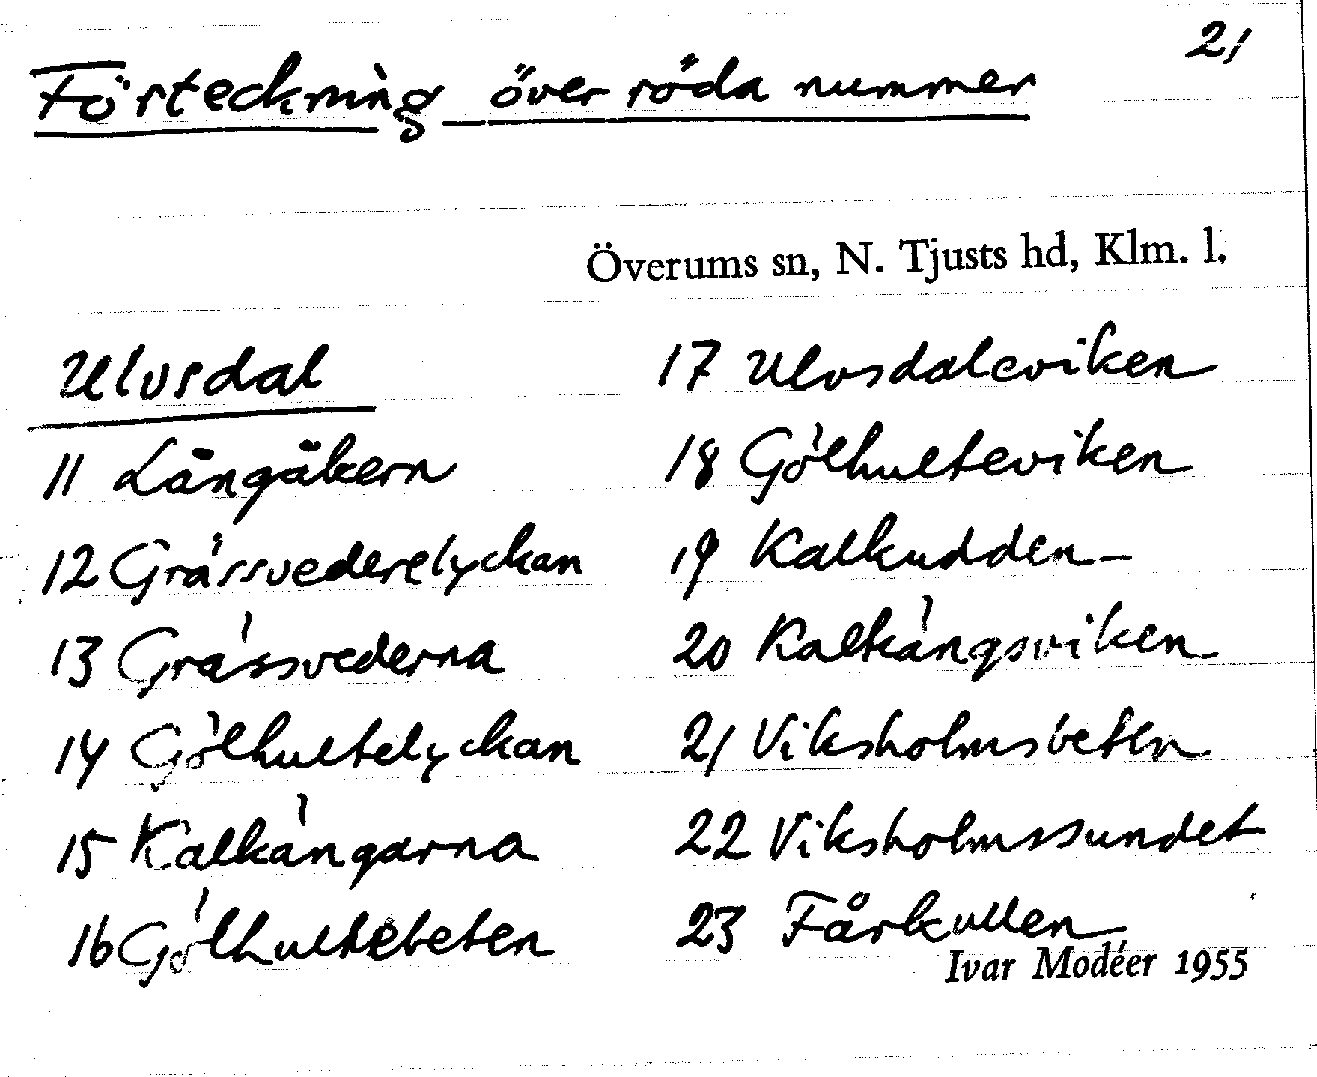 2/
Förteckning över röda nummer
Överums sn, N. Tjusts hd, Klm. l.
Ulvsdal
11 Långåkern
12 Grässvederslyckan
13 Grässvederna
14 Gölhultslyckan
15 Kalkängarna
16 Gölhultsbeten
17 Ulvsdalsviken
18 Gölhultsviken
19 Kalkudden
20 Kalkängsviken
21 Viksholmsbeten
22 Viksholmssundet
23 Fårkullen
Ivar Modéer 1955